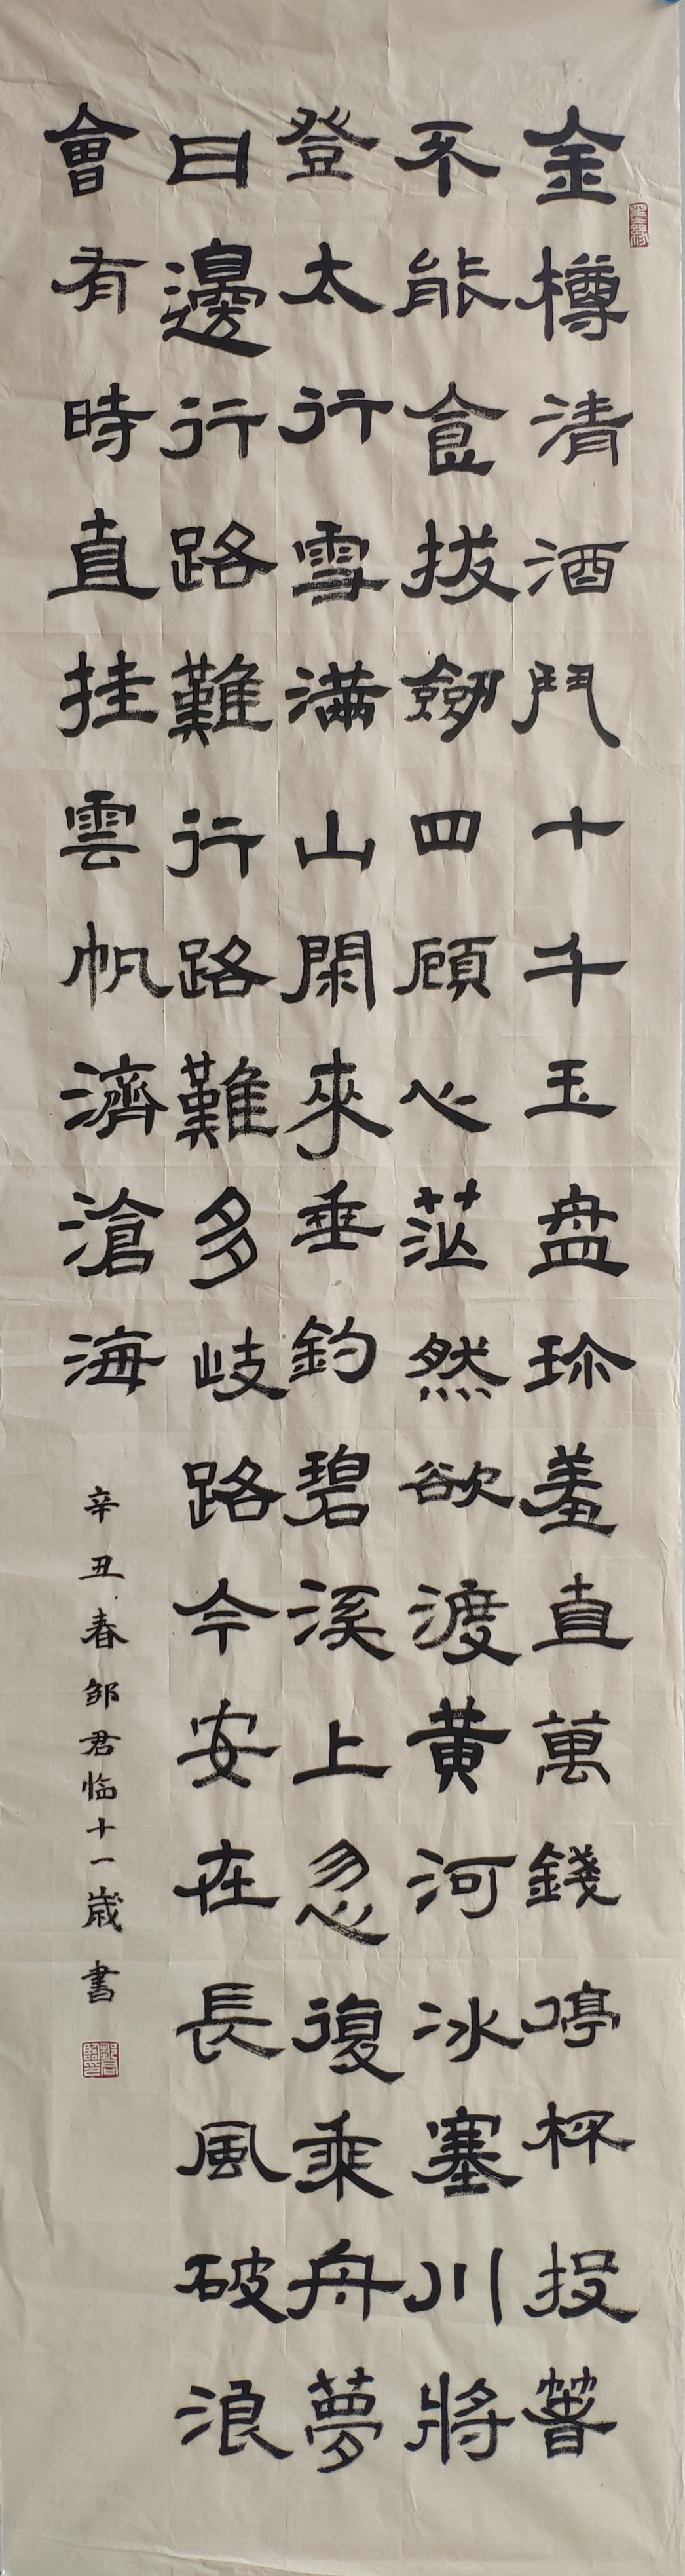 金樽清酒鬥十千玉盘珎羞直萬錢停杯投箸
不能食拔劒四顧心茫然欲渡黄河冰塞川將
登太行雪滿山閑來垂釣碧溪上忽復乘舟夢
日邊行路難行路難多岐路今安在長風破浪
會有時直挂雲帆濟滄海
辛丑春邹君临十一歲書